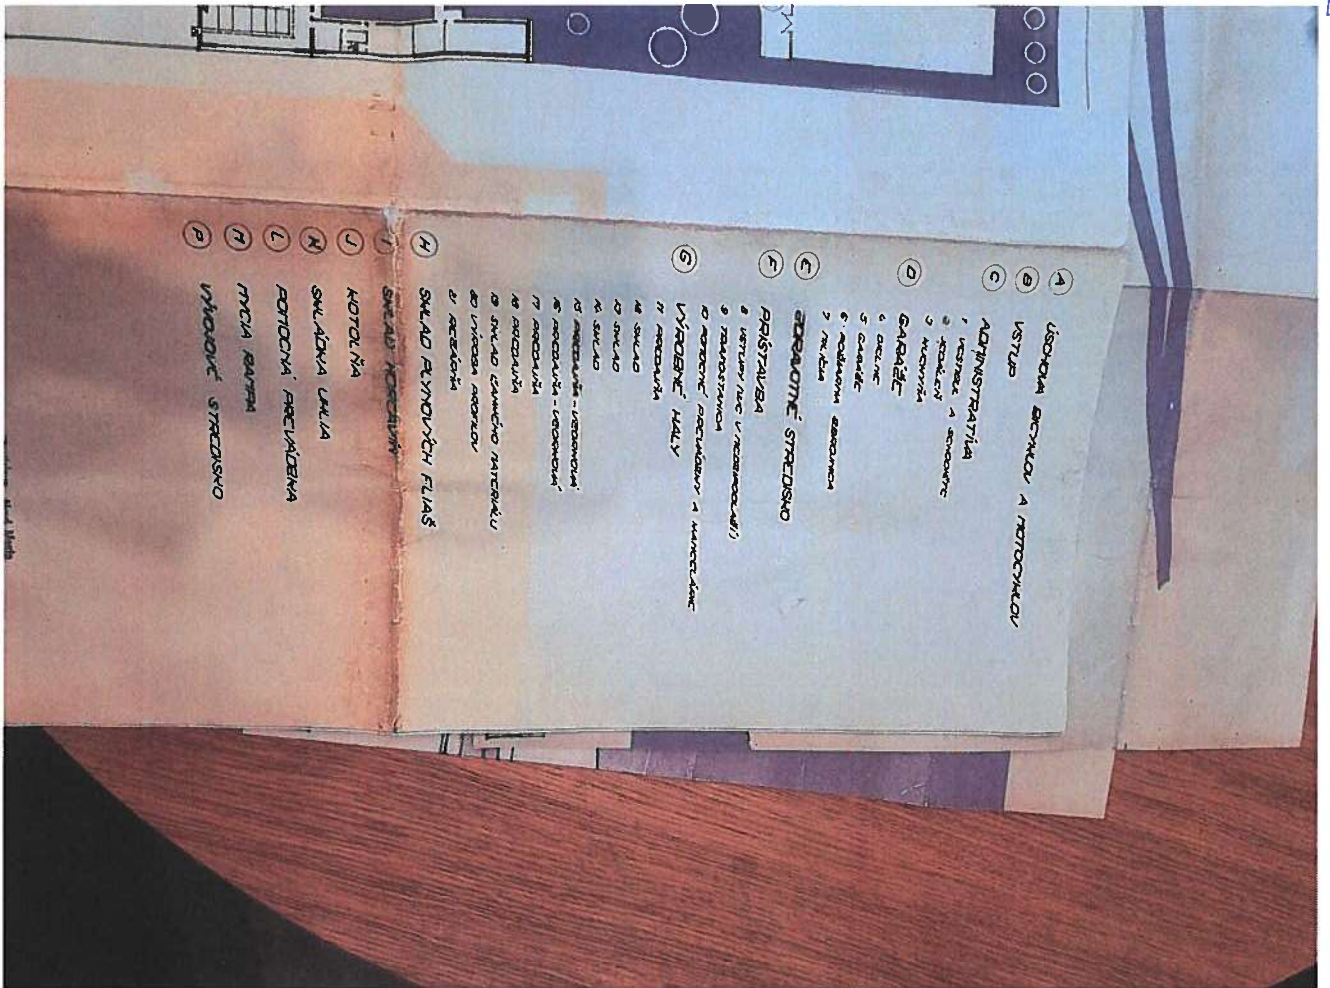 A ÚSCHOVA BICYKLOV A MOTOCYKLOV
B VSTUP
C ADMINISTRATÍVA
1 VESTIBUL A SCHODIŠTE
2 JEDÁLEŇ
3 KUCHYŇA
D GARÁŽE
4 DIELNE
5 GARÁŽE
6 POŽIARNA ZBROJNICA
7 MILÍCIA
E ZDRAVOTNÉ STREDISKO
F PRÍSTAVBA
8 VSTUPY
9 TRAFOSTANICA
10 POMOCNÉ PREVÁDZKY A KANCELÁRIE
G VÝROBNÉ HALY
11 PREDAJŇA
12 SKLAD
13 SKLAD
14 SKLAD
15 PREDAJŇA - VZORKOVŇA
16 PREDAJŇA - VZORKOVŇA
17 PREDAJŇA
18 PREDAJŇA
19 SKLAD MATERIÁLU
20 VÝROBA PROFILOV
21 REZÁRŇA
H SKLAD PLYNOVÝCH FLIAŠ
I SKLAD HORĽAVÍN
J KOTOLŇA
K SKLÁDKA UHLIA
L POMOCNÁ PREVÁDZKA
M MYCIA RAMPA
P VÝVOJOVÉ STREDISKO